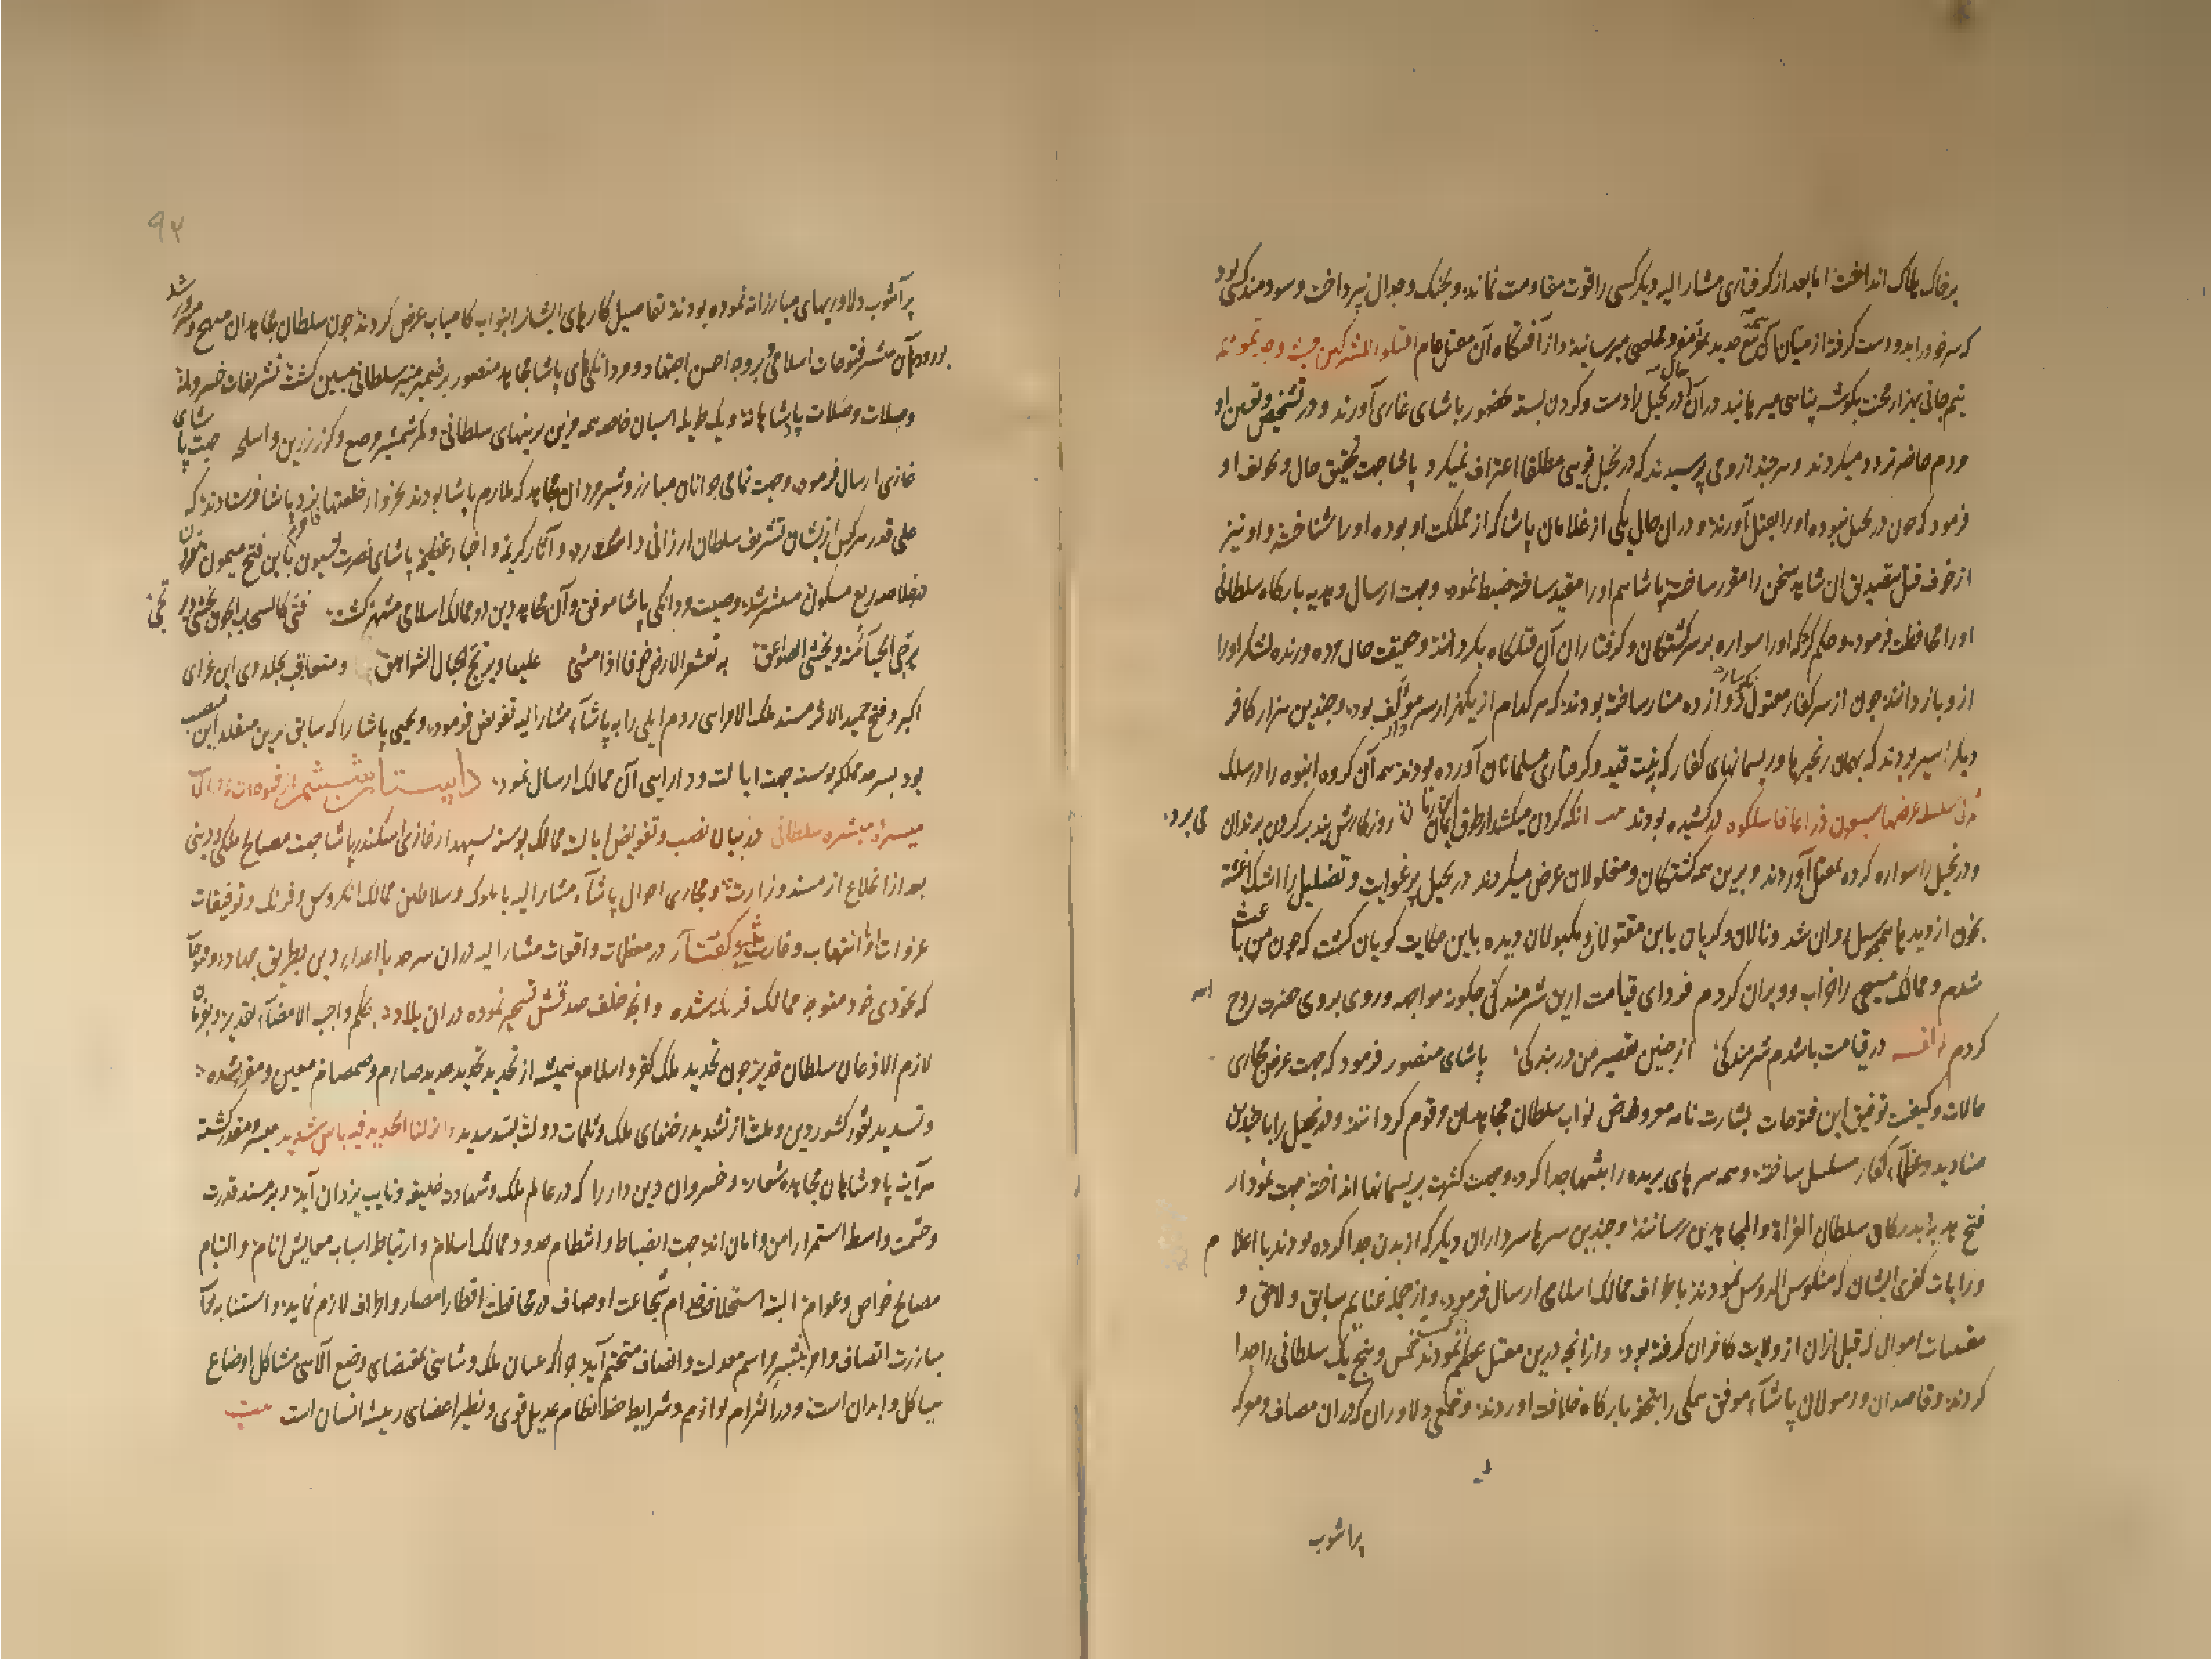 بر خاک هلاک انداخت اما بعد از گرفتاری مشار الیه دیگر کسی را قوت مقاومت نماند و بجنک و جدال نپرداخت و سودمند کسی بود
که سر خود را بدو دست گرفته از میان آن تیغ حدید بمفر و مخلصی میرسانید و از آفتگاه آن مقتل عام اقتلوا المشرکین حیث وجدتموهم
نیم جانی بهزار محنت بگوشه پناهی میرهانید در آن حال درنجیل را دست و گردن بسته بحضور پاشای غازی آوردند و در تشخیص و تعیین او
مردم حاضر تردد میکردند و هر چند از وی پرسیدند که درنجیل تویی مطلقا اعتراف نمیکرد پاشا جهت تحقیق حال و تخلف او
فرمود که چون درنجیل نبوده او را بقتل آورند و در آن حال یکی از غلامان پاشا که از مملکت او بوده او را شناخت و او نیز
از خوف قتل بتصدیق آن شاهد سخن را مقرر ساخت پاشا هم او را مقید ساخته ضبط نمود و جهت ارسال و هدیه بارگاه سلطانی
او را محافظت فرمود و حکم کرد که او را سواره بر سر کشتگان و گرفتاران آن قتلگاه بگردانند و حقیقت حال مرده و زنده لشکر او را
ازو باز دانند چون از سر کفار مقتول دوازده منار ساخته بودند که هر کدام از یکهزار سر مؤلف بود و چندین هزار کافر
دیگر اسیر بودند که بهمان زنجیرها و ریسمانهای کفار که بنیت قید و گرفتاری مسلمانان آورده بودند همه آن گروه انبوه را در سلک
فی سلسلة ذرعها سبعون ذراعا فاسلکوه در کشیده بودند آنکه گردن میکشد از طوق روزگارش بند بر گردن بزندان می برد
و درنجیل را سواره کرده بمقتل آوردند و برین همه کشتگان و مغلولان عرض میکردند درنجیل پر غوایت و تضلیل را اشک آغشته
بخون از دیدها همچو سیل روان شد و نالان و گریان باین مقتولان و مکبولان دیده باین حکایت گویان گشت که چون من باعث
شدم و ممالک مسیحی را خراب و ویران کردم فردای قیامت ازین شرمندگی چگونه مواجهه و روی بروی حضرت روح الله
کردم در قیامت باشدم شرمندگی از چنین تقصیر من در بندگی پاشای منصور فرمود که جهت عرض مجاری
حالات و کیفیت توفیق این فتوحات بشارت نامه معروض نواب سلطان مجاهدان مرقوم گردانند و درنجیل را با چندین
صنادید و عظمآء کفار مسلسل ساخته و همه سرهای بریده را بینیها جدا کرده و جهت کثرت بریسمانها انداخته جهت نمودار
فتح هدیه بدرگاه سلطان الغزاة و المجاهدین رسانند و چندین سرها سرداران دیگر که از بدن جدا کرده بودند با اعلام
و رایات کفری ایشان که منکوس الرؤس نمودند باطراف ممالک اسلامی ارسال فرمود و از جمله غنایم سابق و لاحق و
مقدمات اموال که قبل ازان از ولایت کافران گرفته بود و از آنچه درین مقتل عظیم نمودند خمس و پنج یک سلطانی را جدا
کردند و قاصدان و رسولان پاشآء موفق همگی را بتحفه بارگاه خلافت آوردند و جمعی دلاوران که در آن مصاف و معرکه
پرآشوب
۹۲
پر آشوب دلاوریهای مبارزانه نموده بودند تفاصیل کارهای ایشانرا بنواب کامیاب عرض کردند چون سلطان مجاهدان
آن مبشر فتوحات اسلامی بر وجه احسن اجتهاد و مردانگیهای پاشا مجاهد منصور بر ضمیر منیر سلطانی مبین گشت تشریفات خسروانه
وصلات پادشاهانه و یک طویله اسبان خاصه همه مزین بزینهای سلطانی و کمر شمشیر مرصع و گرز زرین و اسلحه جهت پاشای
غازی ارسال فرمود و جهت تمامی جوانان مبارز و شیر مردان مجاهد که ملازم پاشا بودند خلعتها نزد پاشا فرستادند که
علی قدر هر کس از ایشان تشریف سلطان ارزانی دارد و آثار کریمه و اخبار عظیمه پاشای نصرت باین فتح میمون
ربع مسکون منتشر شد و صیت مردانگی پاشا موفق و آن مجاهد دین در ممالک اسلامی مشتهر گشت فتی کالسحاب الجون یخشی و یرتجی
یرجی الحیا منه و یخشی الصواعق تقشعر الارض خوفا اذا مشی علیها و یرتج الجبال الشواهق و متعاقب بجلدوی این غزای
اکبر و فتح حمید الاثر مسند ملک الامرایی روم ایلی را به پاشآء مشار الیه تفویض فرمود و یحیی پاشا را که سابق برین متقلد این منصب
بود بسر حد مملکت بوسنه جهت ایالت و دارایی آن ممالک ارسال نمود داستان ششم از فتوحات
میسره مبشره سلطانی در بیان نصب و تفویض ایالت ممالک بوسنه بسپهدار غازی اسکندر پاشا جهت مصالح ملکی و دینی
بعد از انخلاع از مسند وزارت و مجاری احوال پاشآء مشار الیه با ملوک و سلاطین ممالک انکروس و فرنک و توفیقات
غزوات و انتهاب و غارت گفتار در معظمات واقعات مشار الیه در ان سرحد با اعداء دین بطریق جهاد
که بخودی خود متوجه ممالک فرنک شده و آنچه خلف صدقش تسخیر نموده در ان بلاد بحکم واجب الامضآء تقدیر و بفرمان
لازم الاذعان سلطان قدیر چون تحدید ملک کفر و اسلام همیشه از تحدید حدید صارم و صمصام معین و مقرر شده
و تسدید ثغور کشور دین و ملت از تشدید رخنهای ملک و ثلمات دولت بسد سدید و انزلنا الحدید فیه باس شدید میسر و مقدر گشته
هر آینه پادشاهان مجاهد شعار و خسروان دین دار را که در عالم ملک و شهادت خلیفه و نایب یزدان آید و بر مسند قدرت
و حشمت واسطه استمرار امن و امان اند جهت انضباط و انتظام حدود ممالک اسلام و ارتباط اسباب معایش انام و التیام
مصالح خواص و عوام البته استحلاف خدام شجاعت اوصاف در محافظت اقطار امصار و اطراف لازم نماید و استنابه
مبارزت اتصاف و امر بنشر مراسم معدلت و انصاف متحتم آید چرا که عمان ملک و شاهی بمقتضای وضع الهی مشاکل اوضاع
هیاکل و ابدان است و در التزام لوازم و شرایط حفظ نظام عدیل قوی و نظیر اعضای رییسه انسان است بیت